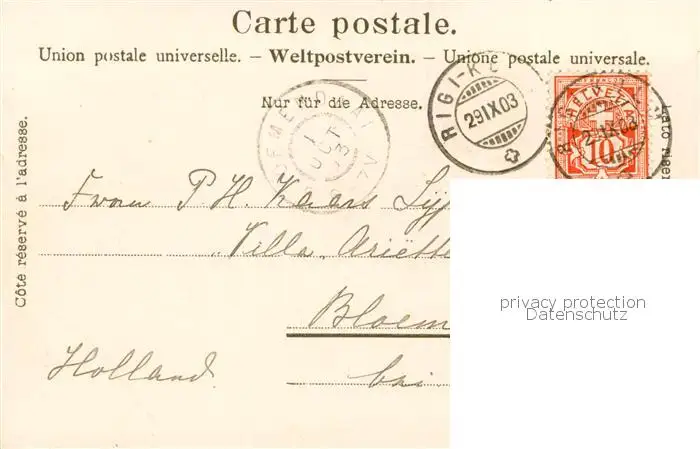 Carte postale.
Union postale universelle. – Weltpostverein. – Unione postale universale.
Nur für die Adresse.
Côte réservé à l'adresse.
RIGI-K
29 IX 03
HELVE
29 IX 03
10
1
OCT
3
Frau P. H. Kaars
Villa Ariëtte
Bloem
Holland.
bei
privacy protection
Datenschutz